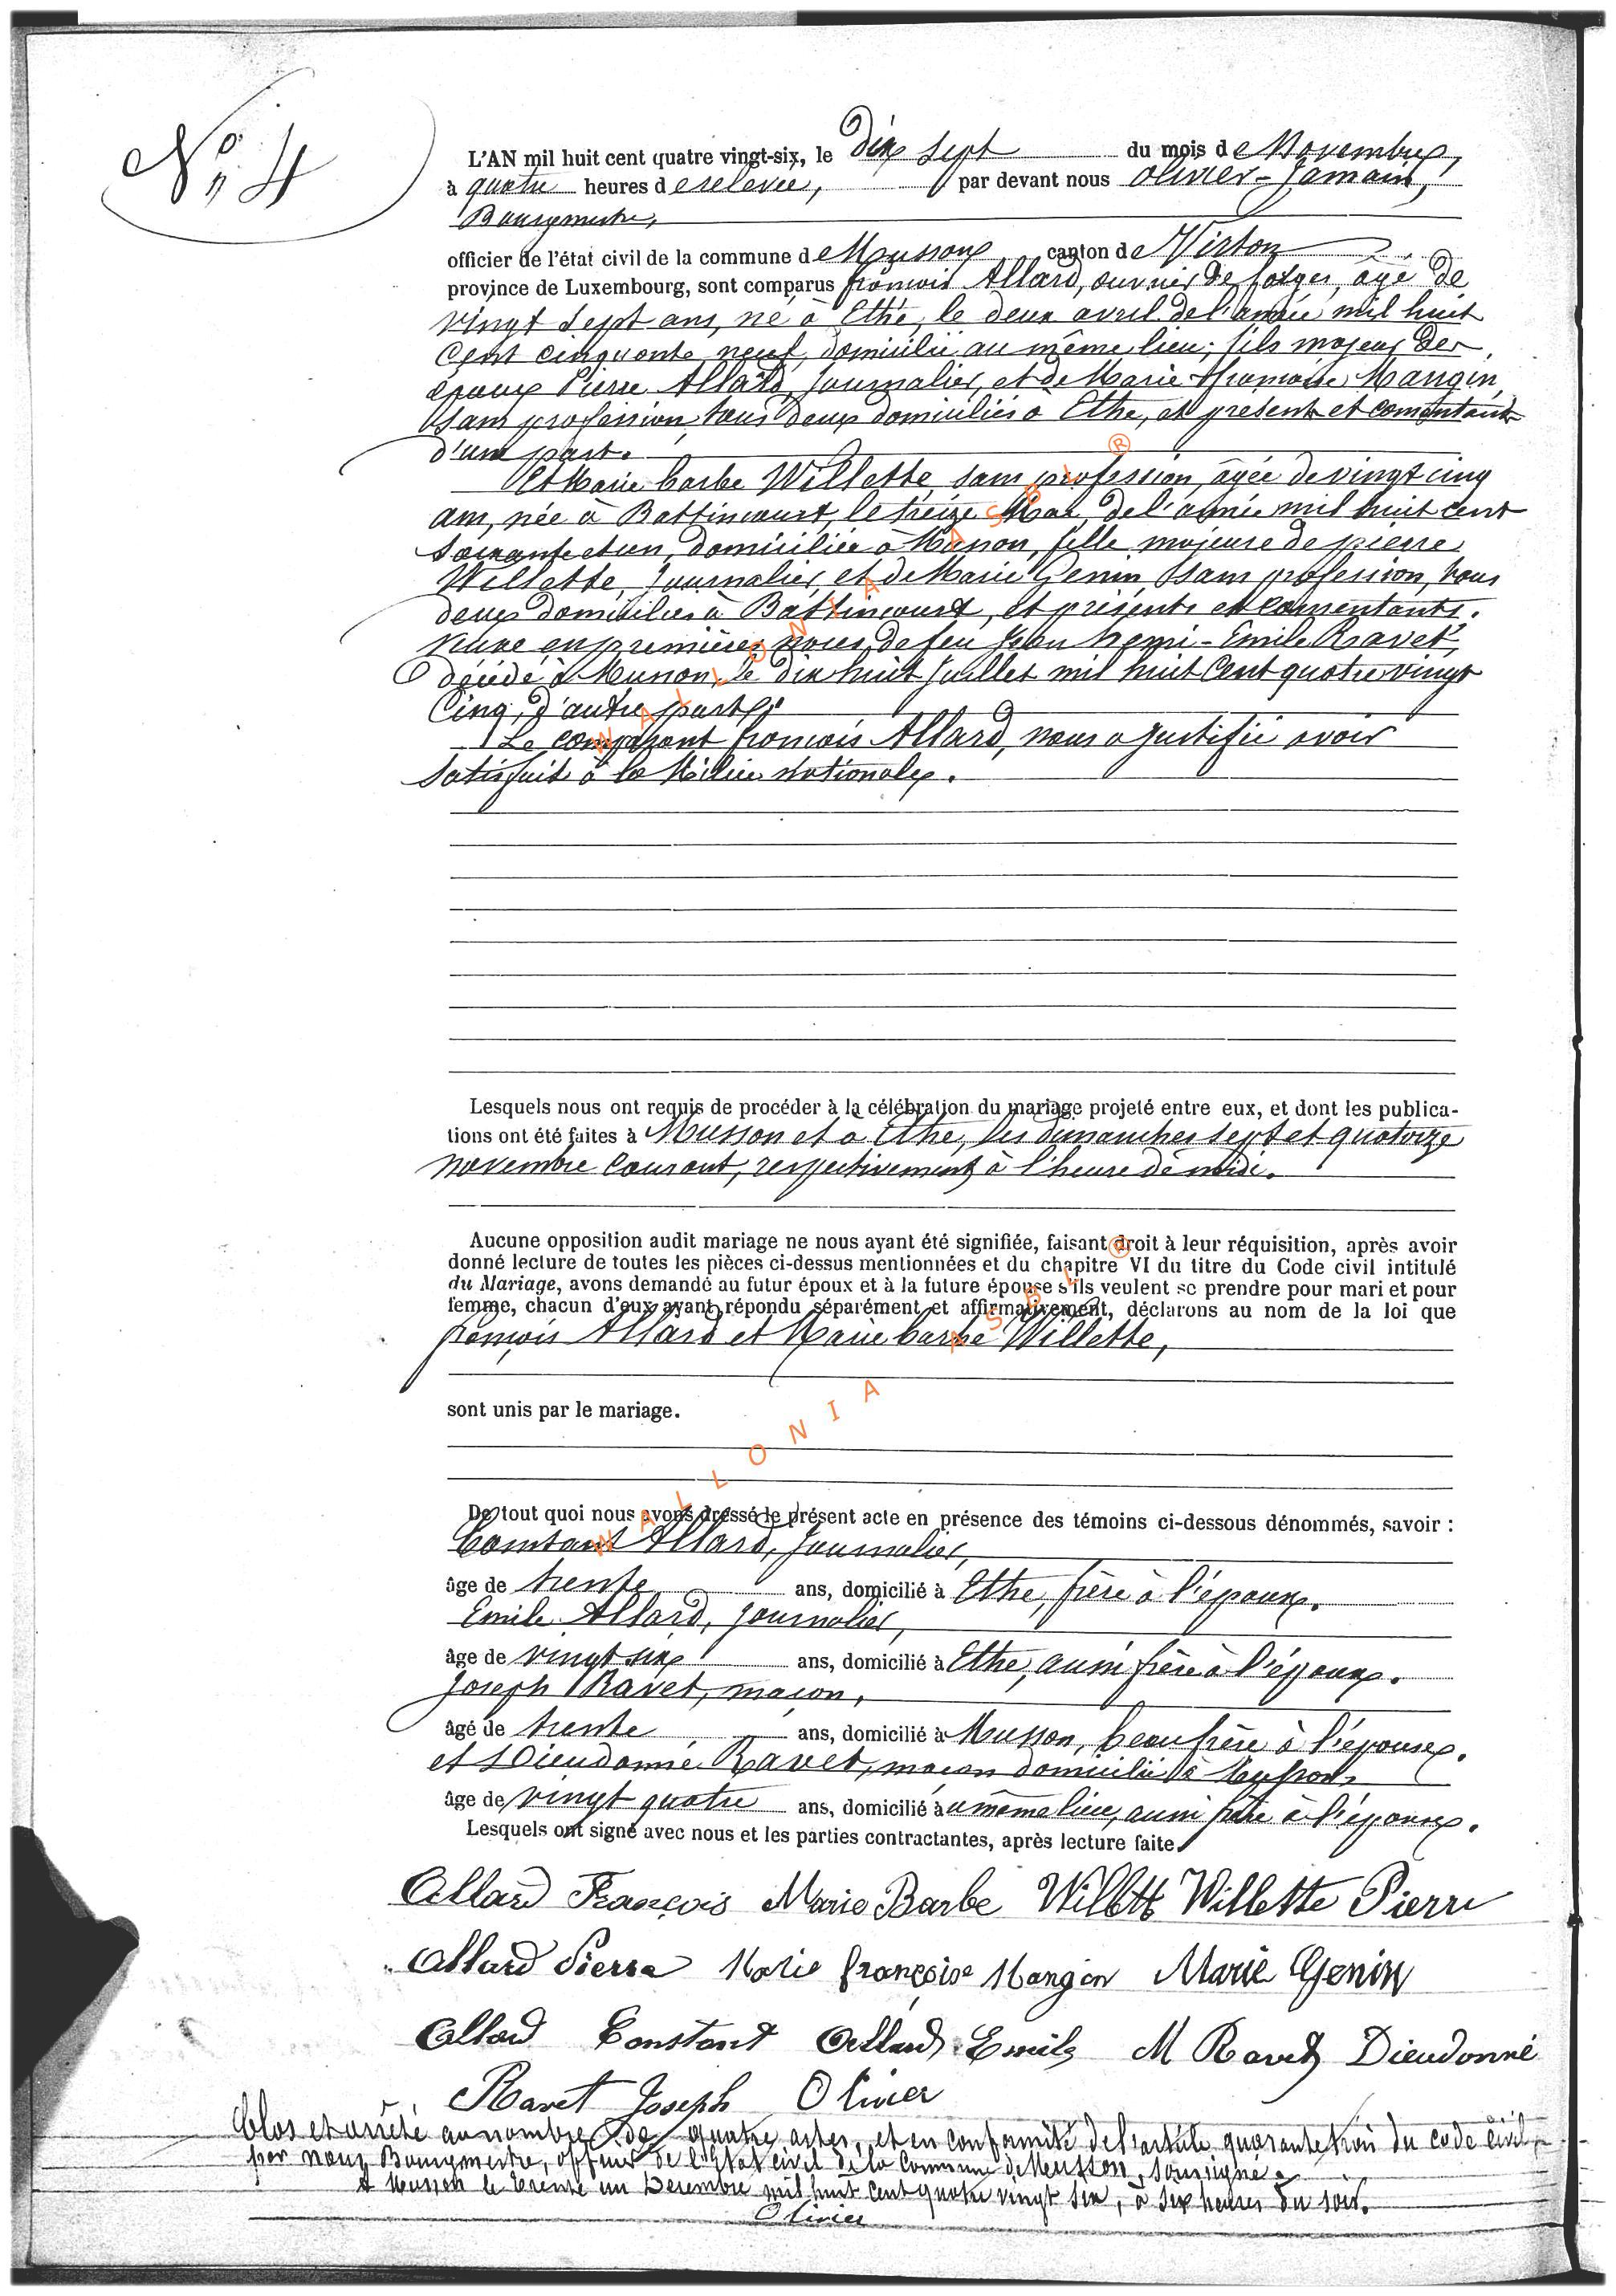 N° 4
L'AN mil huit cent quatre vingt-six, le Dix sept du mois de Novembre,
à quatre heures de relevée, par devant nous Olivier - Jamain,
Bourgmestre,
officier de l'état civil de la commune de Musson canton de Virton
province de Luxembourg, sont comparus françois Allard, ouvrier de forges, âgé de
vingt sept ans, né à Ethe, le deux avril de l'année mil huit
Cent cinquante neuf, domicilié au même lieu; fils majeur des
époux Pierre Allard, Journalier, et de Marie françoise Mangin,
sans profession, tous deux domiciliés à Ethe, et présents et consentants
d'une part.
Et Marie barbe Willette, sans profession, âgée de vingt cinq
ans, née à Battincourt, le treize Mai de l'année mil huit cent
soixante et un, domiciliée à Musson, fille majeure de pierre
Willette, Journalier, et de Marie Genin sans profession, tous
deux domiciliés à Battincourt, et présents et consentants.
Veuve en premières noces de feu Jean henri - Emile Ravet,
décédé à Musson, le dix huit Juillet mil huit Cent quatre vingt
Cinq, d'autre part.
Le comparant françois Allard, nous a justifié avoir
satisfait à la Milice Nationale.
Lesquels nous ont requis de procéder à la célébration du mariage projeté entre eux, et dont les publica-
tions ont été faites à Musson et à Ethe, les dimanches sept et quatorze
novembre courant, respectivement à l'heure de midi.
Aucune opposition audit mariage ne nous ayant été signifiée, faisant droit à leur réquisition, après avoir
donné lecture de toutes les pièces ci-dessus mentionnées et du chapitre VI du titre du Code civil intitulé
du Mariage, avons demandé au futur époux et à la future épouse s'ils veulent se prendre pour mari et pour
femme, chacun d'eux ayant répondu séparément et affirmativement, déclarons au nom de la loi que
françois Allard et Marie barbe Willette,
sont unis par le mariage.
De tout quoi nous avons dressé le présent acte en présence des témoins ci-dessous dénommés, savoir :
Constant Allard, Journalier,
âge de trente ans, domicilié à Ethe, frère à l'époux.
Emile Allard, journalier,
âge de vingt six ans, domicilié à Ethe, aussi frère à l'époux.
Joseph Ravet, maçon,
âgé de trente ans, domicilié à Musson, beau frère à l'épouse.
et Dieudonné Ravet, maçon domicilié à Musson
âge de vingt quatre ans, domicilié au même lieu, aussi frère à l'époux.
Lesquels ont signé avec nous et les parties contractantes, après lecture faite.
Allard François Marie Barbe Willett Willette Pierre
Allard Pierre Marie françoise Mangin Marie Genin
Allard Constant Allard Emile M Ravet Dieudonné
Ravet Joseph Olivier
Clos et arrêté au nombre de quatre actes, et en conformité de l'article quarante trois du code civil
par nous Bourgmestre, officier de l'état civil de la Commune de Musson, soussigné
A Musson le trente un Décembre mil huit cent quatre vingt six, à six heures du soir.
Olivier
WALLONIA ASBL ®
WALLONIA ASBL ®